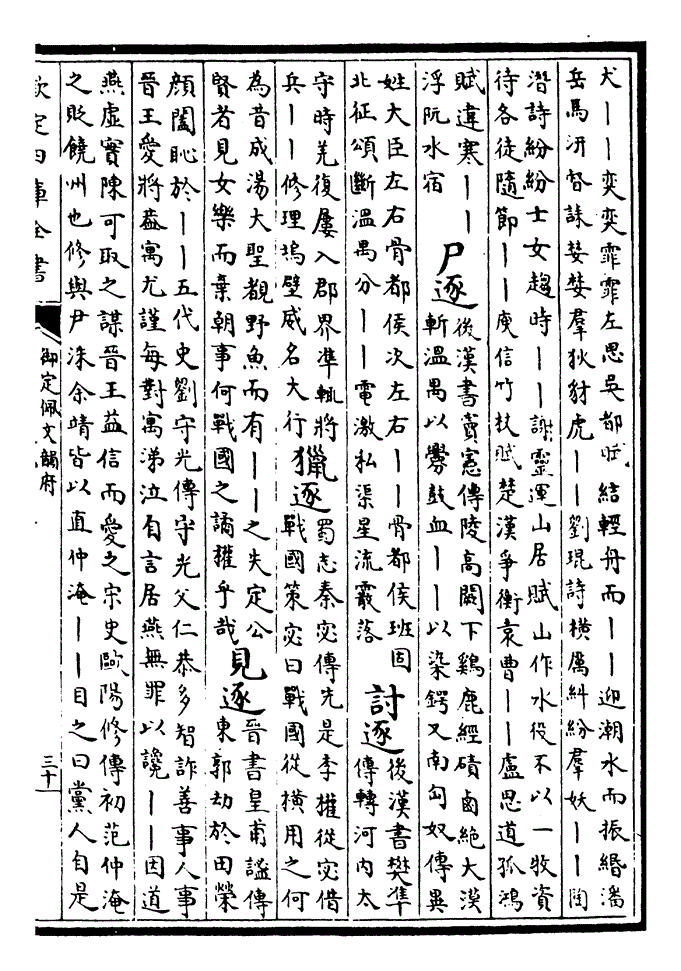 犬丨丨奕奕霏霏左思吳都賦結輕舟而丨丨迎潮水而振緡潘
岳馬汧督誄婪婪羣狄豺虎丨丨劉琨詩橫厲糾紛羣妖丨丨陶
潛詩紛紛士女趨時丨丨謝靈運山居賦山作水役不以一牧資
待各徒隨節丨丨庾信竹杖賦楚漢爭衡袁曹丨丨盧思道孤鴻
賦違寒丨丨
浮阮水宿
尸逐
後漢書竇憲傳陵高闕下鷄鹿經磧鹵絶大漠
斬溫禺以釁鼓血丨丨以染鍔又南匈奴傳異
姓大臣左右骨都侯次左右丨丨骨都侯班固
北征頌斷溫禺分丨丨電激私渠星流霰落
討逐
後漢書樊凖
傳轉河内太
守時羌復屢入郡界凖輒將
兵丨丨修理塢壁威名大行
獵逐
蜀志秦宓傳先是李權從宓借
戰國策宓曰戰國從橫用之何
為昔成湯大聖覩野魚而有丨丨之失定公
賢者見女樂而棄朝事何戰國之譎權乎哉
見逐
晉書皇甫謐傳
東郭劫於田榮
顔闔恥於丨丨五代史劉守光傳守光父仁恭多智詐善事人事
晉王愛將葢寓尤謹每對寓涕泣自言居燕無罪以讒丨丨因道
燕虛實陳可取之謀晉王益信而愛之宋史歐陽修傳初范仲淹
之貶饒州也修與尹洙余靖皆以直仲淹丨丨目之曰黨人自是
欽定四庫全書
御定佩文韻府
三十